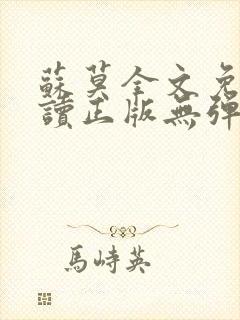 蘇莫全文免
讀正版無彈
馬峙英